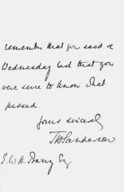 remember that you said on
Wednesday last that you
were sure to know what
passed.
yours sincerely
T H Sanderson
E. W. H. Esq